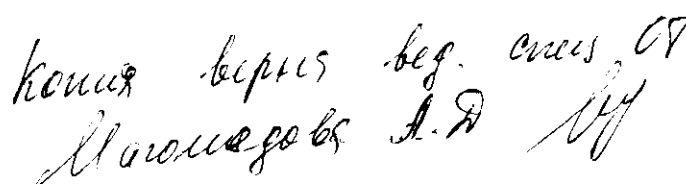 Копия верна вед. спец ОТ
Магомедова А.Д